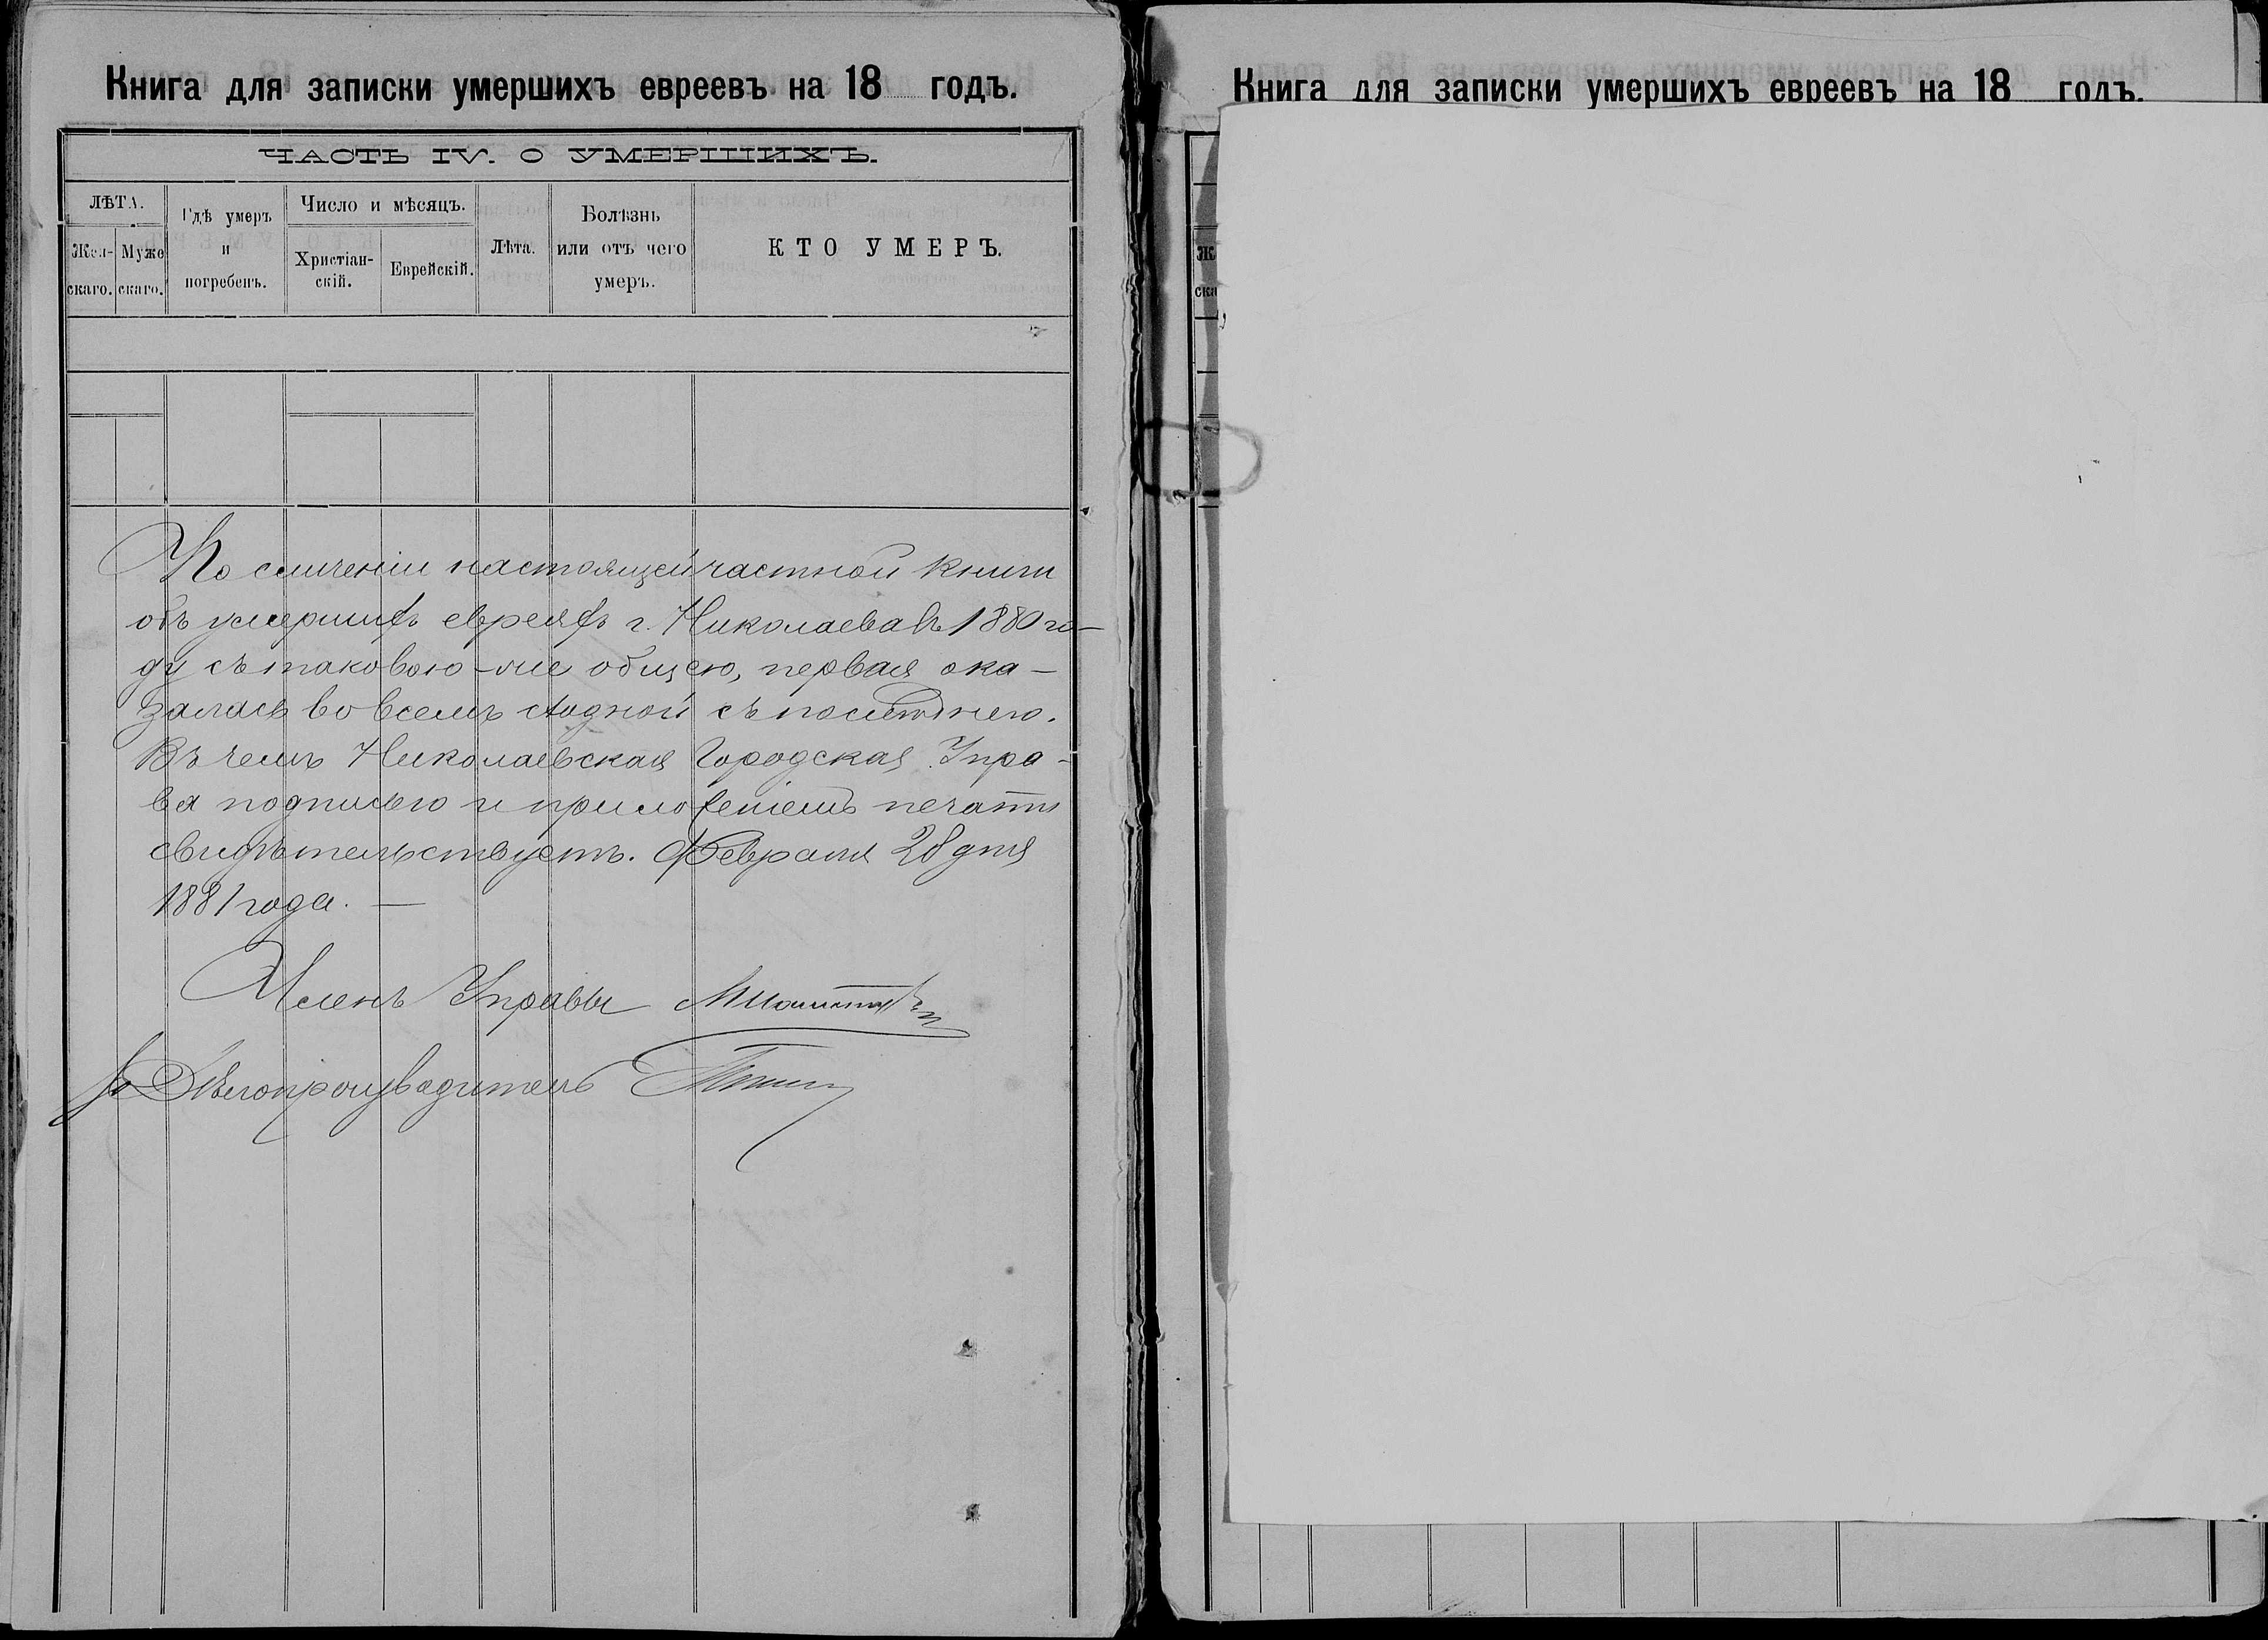 Книга для записки умершихъ евреевъ на 18 годъ.
ЧАСТЬ IV. О УМЕРШИХЪ.
ЛѢТА.
Жен-
скаго.
Муже
скаго.
Гдѣ умеръ
и
погребенъ.
Число и мѣсяцъ.
Христіан-
скій.
Еврейскій.
Лѣта.
Болѣзнь
или отъ чего
умеръ.
КТО УМЕРЪ.
По сличеніи настоящей частной книги
объ умершихъ евреяхъ г. Николаева въ 1880 го-
ду съ таковою-же общею, первая ока-
залась во всемъ сходной съ послѣднею.
Въ чемъ Николаевская Городская Упра-
ва подписью и приложеніемъ печати
свидѣтельствуетъ. Февраля 28 дня
1881 года. —
Членъ Управы
Дѣлопроизводитель
Книга для записки умершихъ евреевъ на 18 годъ.
Ж
ска